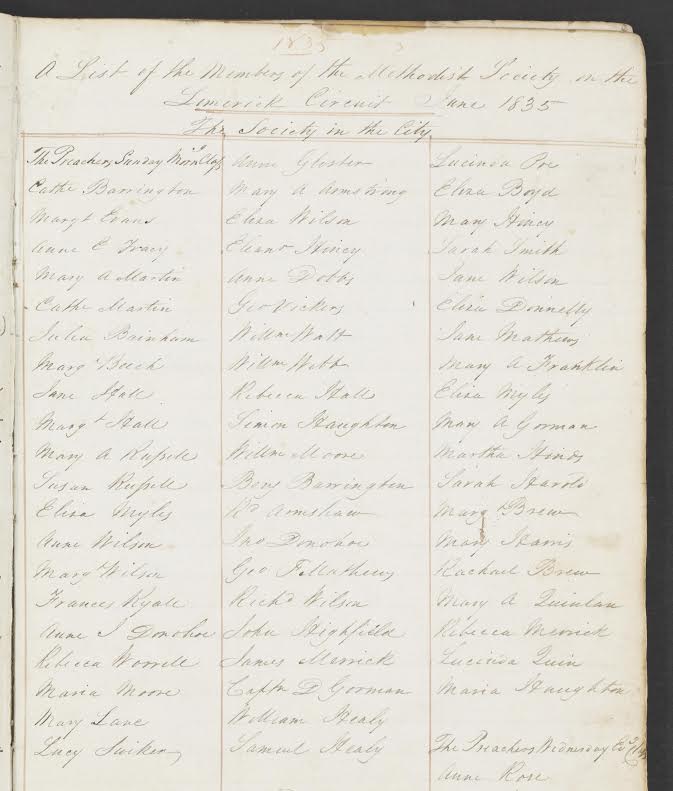 1835 3
A List of the Members of the Methodist Society in the
Limerick Circuit June 1835
The Society in the City
The Preachers Sunday Morng Class
Cathe Barrington
Margt Evans
Anne E Tracy
Mary A Martin
Cathe Martin
Julia Bainham
Margt Beech
Jane Hall
Margt Hall
Mary A Russell
Susan Russell
Eliza Myles
Anne Wilson
Margt Wilson
Frances Ryall
Anne J Donohoe
Rebecca Worrell
Maria Moore
Mary Lane
Lucy
Anne Gloster
Mary A Armstrong
Eliza Wilson
Eleanr Hincy
Anne Dobbs
Geo Vickers
Willm Watt
Willm Webb
Rebecca Hall
Simon Haughton
Willm Moore
Benj Barrington
Rd Armshaw
Jno Donohoe
Geo F Mathews
Richd Wilson
John Highfield
James Merrick
Captn D Gorman
William Healy
Samuel Healy
Lucinda
Eliza Boyd
Mary Hincy
Sarah Smith
Jane Wilson
Eliza Donnelly
Jane Mathews
Mary A Franklin
Eliza Myles
Mary A Gorman
Martha Hinds
Sarah Harold
Margt Brew
Mary Harris
Rachael Brew
Mary A Quinlan
Rebecca Merrick
Lucinda Quin
Maria Haughton
The Preachers Wednesday Evg Class
Anne Rose